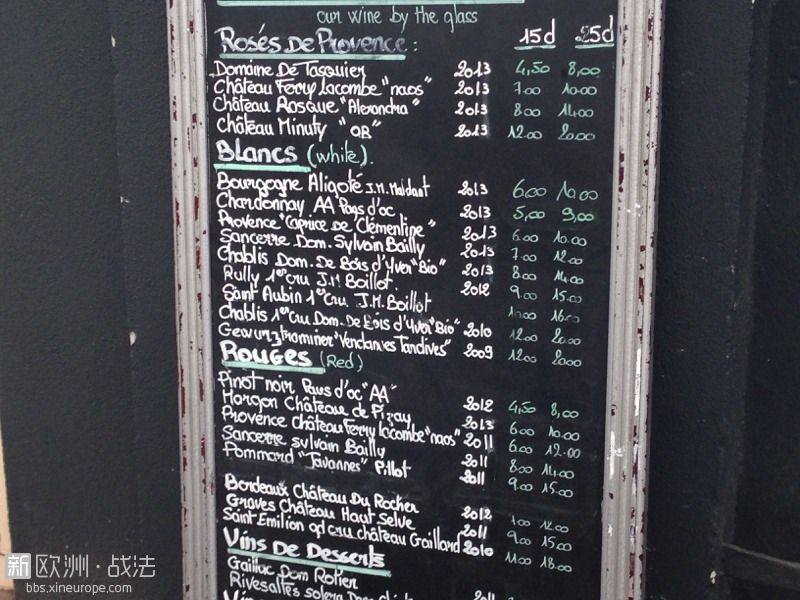 our wine by the glass
Rosés De Provence : 15d 25d
Domaine De Tasquier 2013 4,50 8,00
Château Ferry Lacombe "naos" 2013 7.00 10.00
Château Rasque "Alexandra" 2013 8.00 14.00
Château Minuty "OR" 2013 12.00 20.00
Blancs (white).
Bourgogne Aligoté J.M. Maldant 2013 6.00 10.00
Chardonnay AA Pays d'oc 2013 5,00 9,00
Provence "Caprice de Clémentine" 2013 6.00 10.00
Sancerre Dom. Sylvain Bailly 2013 7.00 12.00
Chablis Dom. De Bois d'Yver "Bio" 2013 8.00 14.00
Rully 1er cru J.M Boillot. 2012 9.00 15.00
Saint Aubin 1er Cru. J.M. Boillot 10.00 16.00
Chablis 1er Cru Dom. De Bois d'Yver "Bio" 2010 12.00 20.00
Gewurztraminer "Vendanies Tardives" 2009 12.00 20.00
Rouges (Red)
Pinot noir Pays d'oc "AA" 2012 4,50 8,00
Morgon Château de Pizay 2013 6.00 10.00
Provence Château Ferry Lacombe "naos" 2011 6.00 12.00
Sancerre Sylvain Bailly 2011 8.00 14.00
Pommard "Tavannes" Pillot 2011 9.00 15.00
Bordeaux Château Du Rocher 2012 7.00 12.00
Graves Château Haut Selve 2011 9.00 15.00
Saint Emilion gd cru château Gaillard 2010 11.00 18.00
Vins De Desserts
Gaillac Dom Rotier
Rivesaltes solera Dom 2011
新欧洲·战法
bbs.xineurope.com